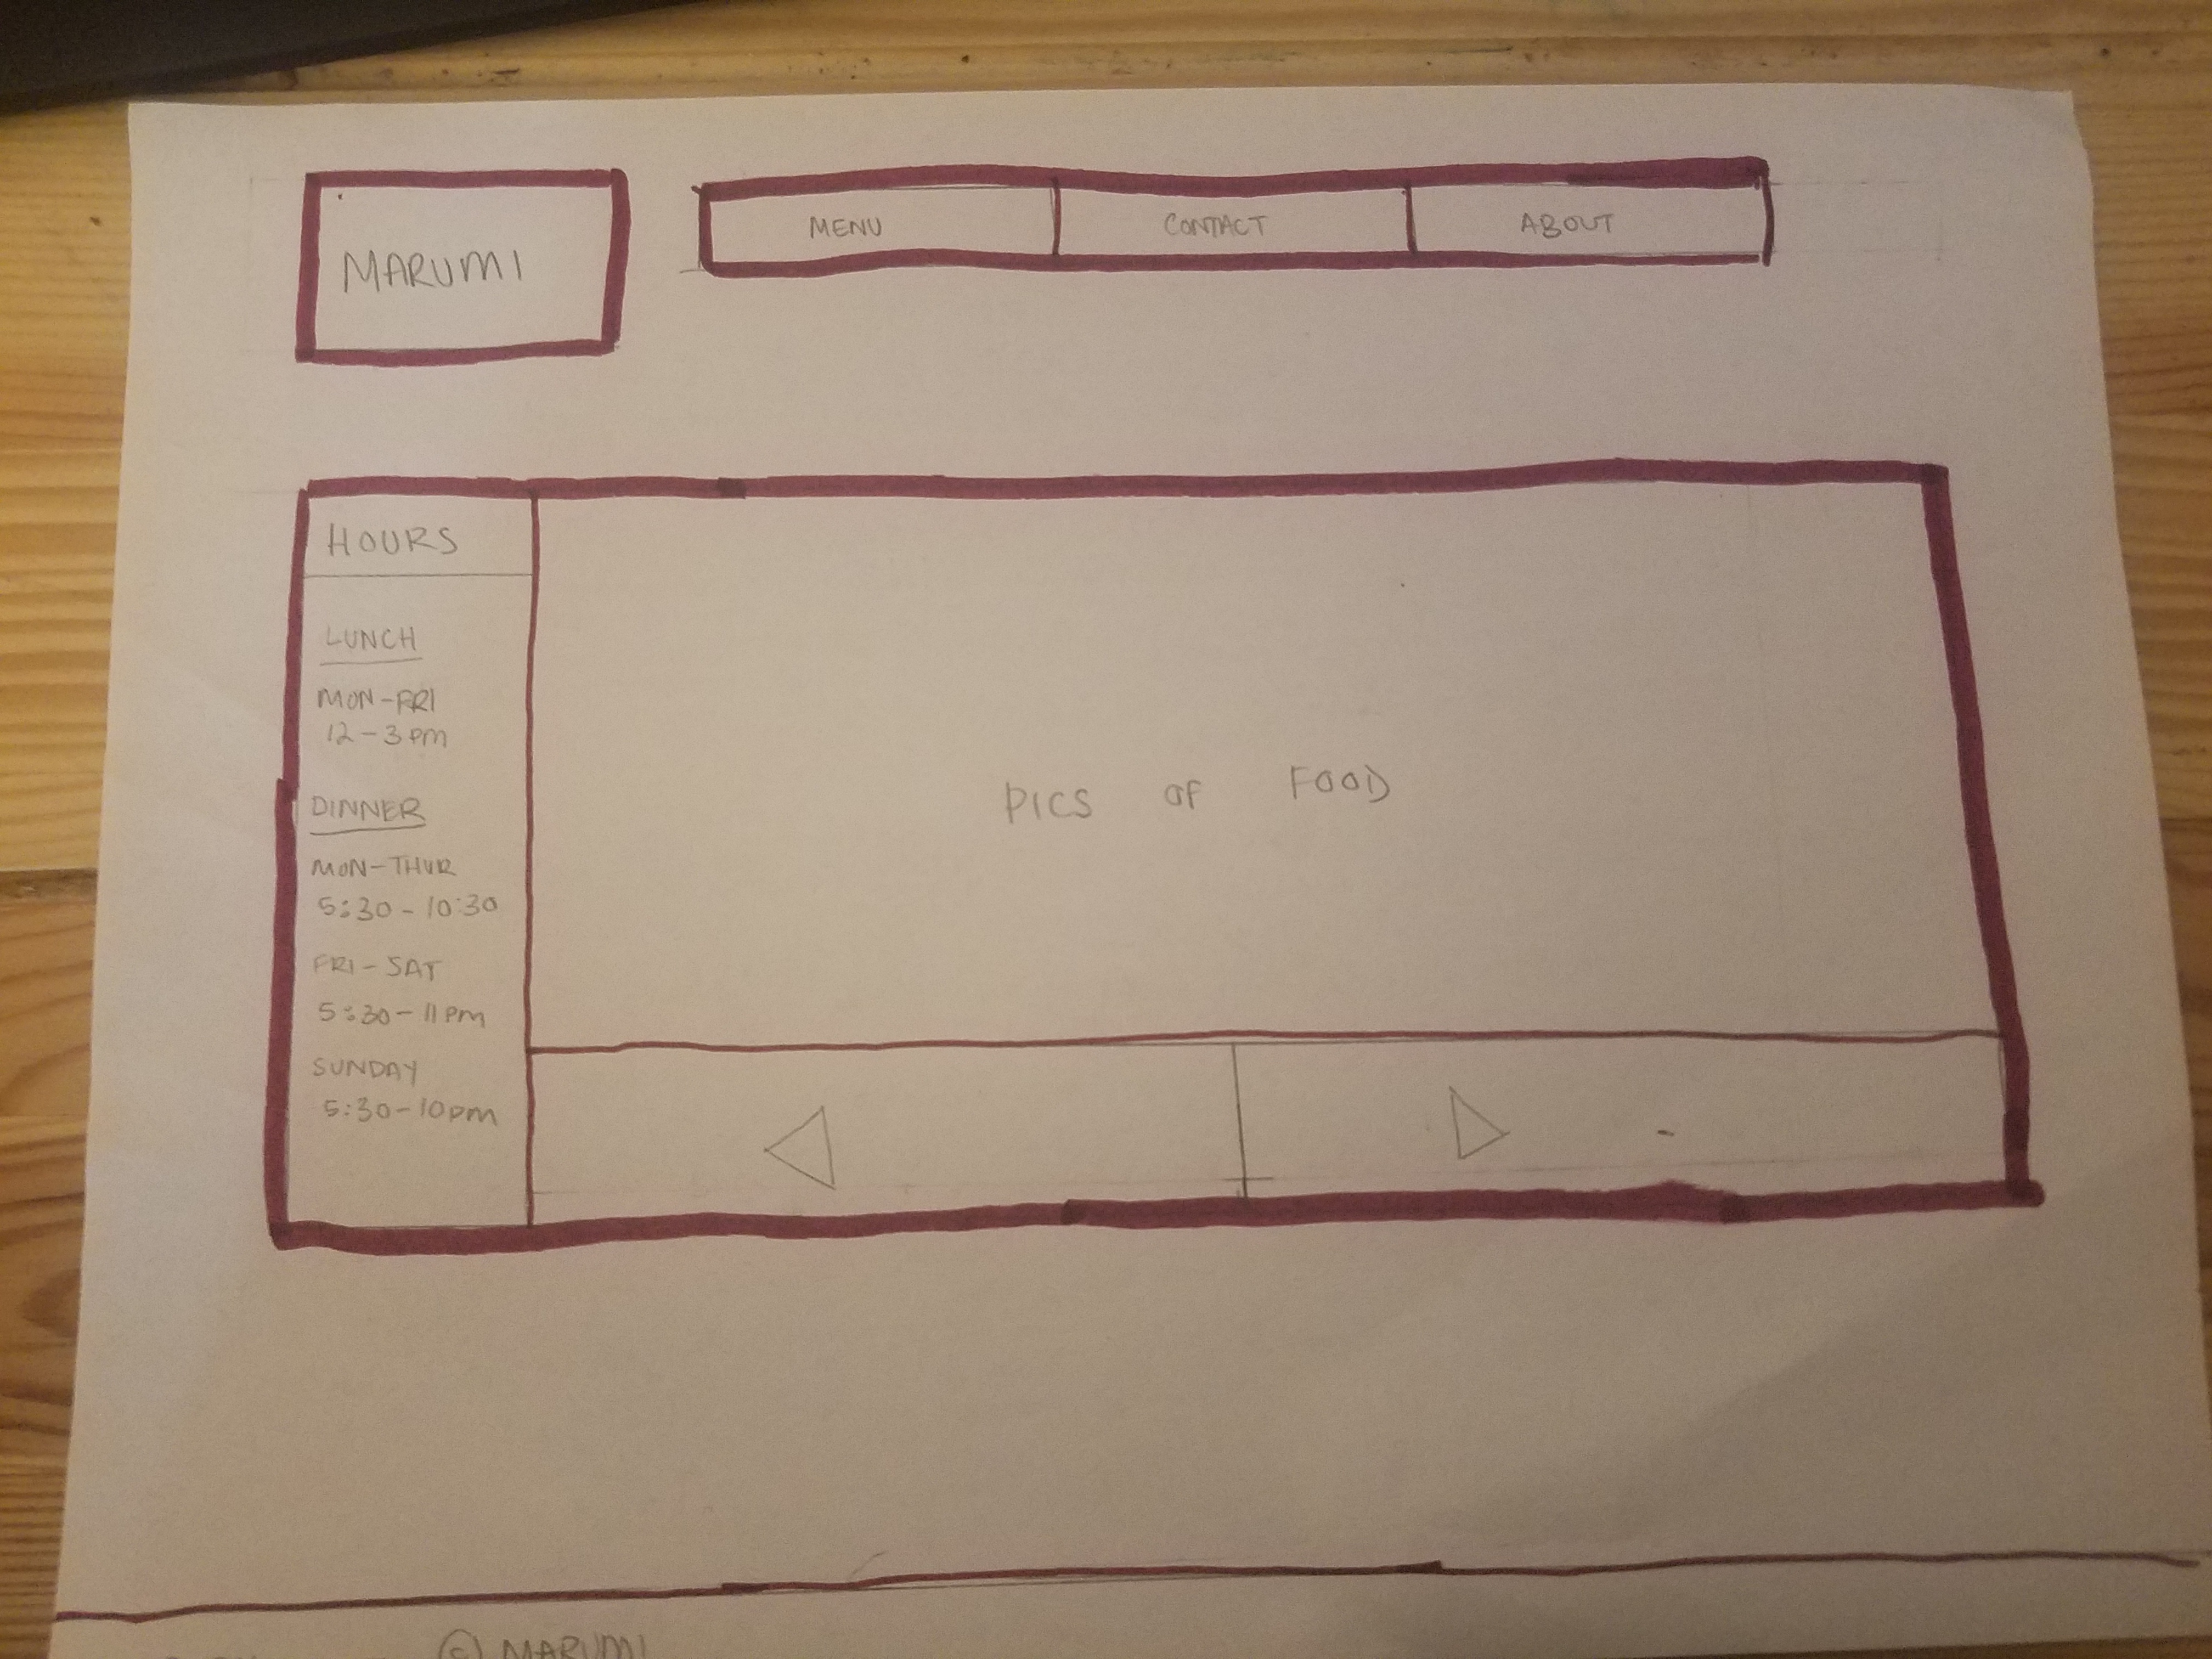 MARUMI
MENU
CONTACT
ABOUT
HOURS
LUNCH
MON-FRI
12-3pm
DINNER
MON-THUR
5:30-10:30
FRI-SAT
5:30-11pm
SUNDAY
5:30-10pm
PICS OF FOOD
© MARUMI